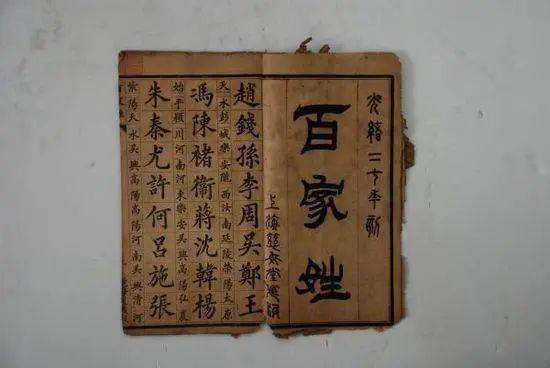 光緒二七年新
百家姓
上海堂
趙錢孫李周吳鄭王
天水彭城樂安隴西汝南延陵滎陽太原
馮陳褚衛蔣沈韓楊
始平潁川河南河東樂安吳興高陽弘農
朱秦尤許何呂施張
紫陽天水吳興高陽高陽河南吳興清河